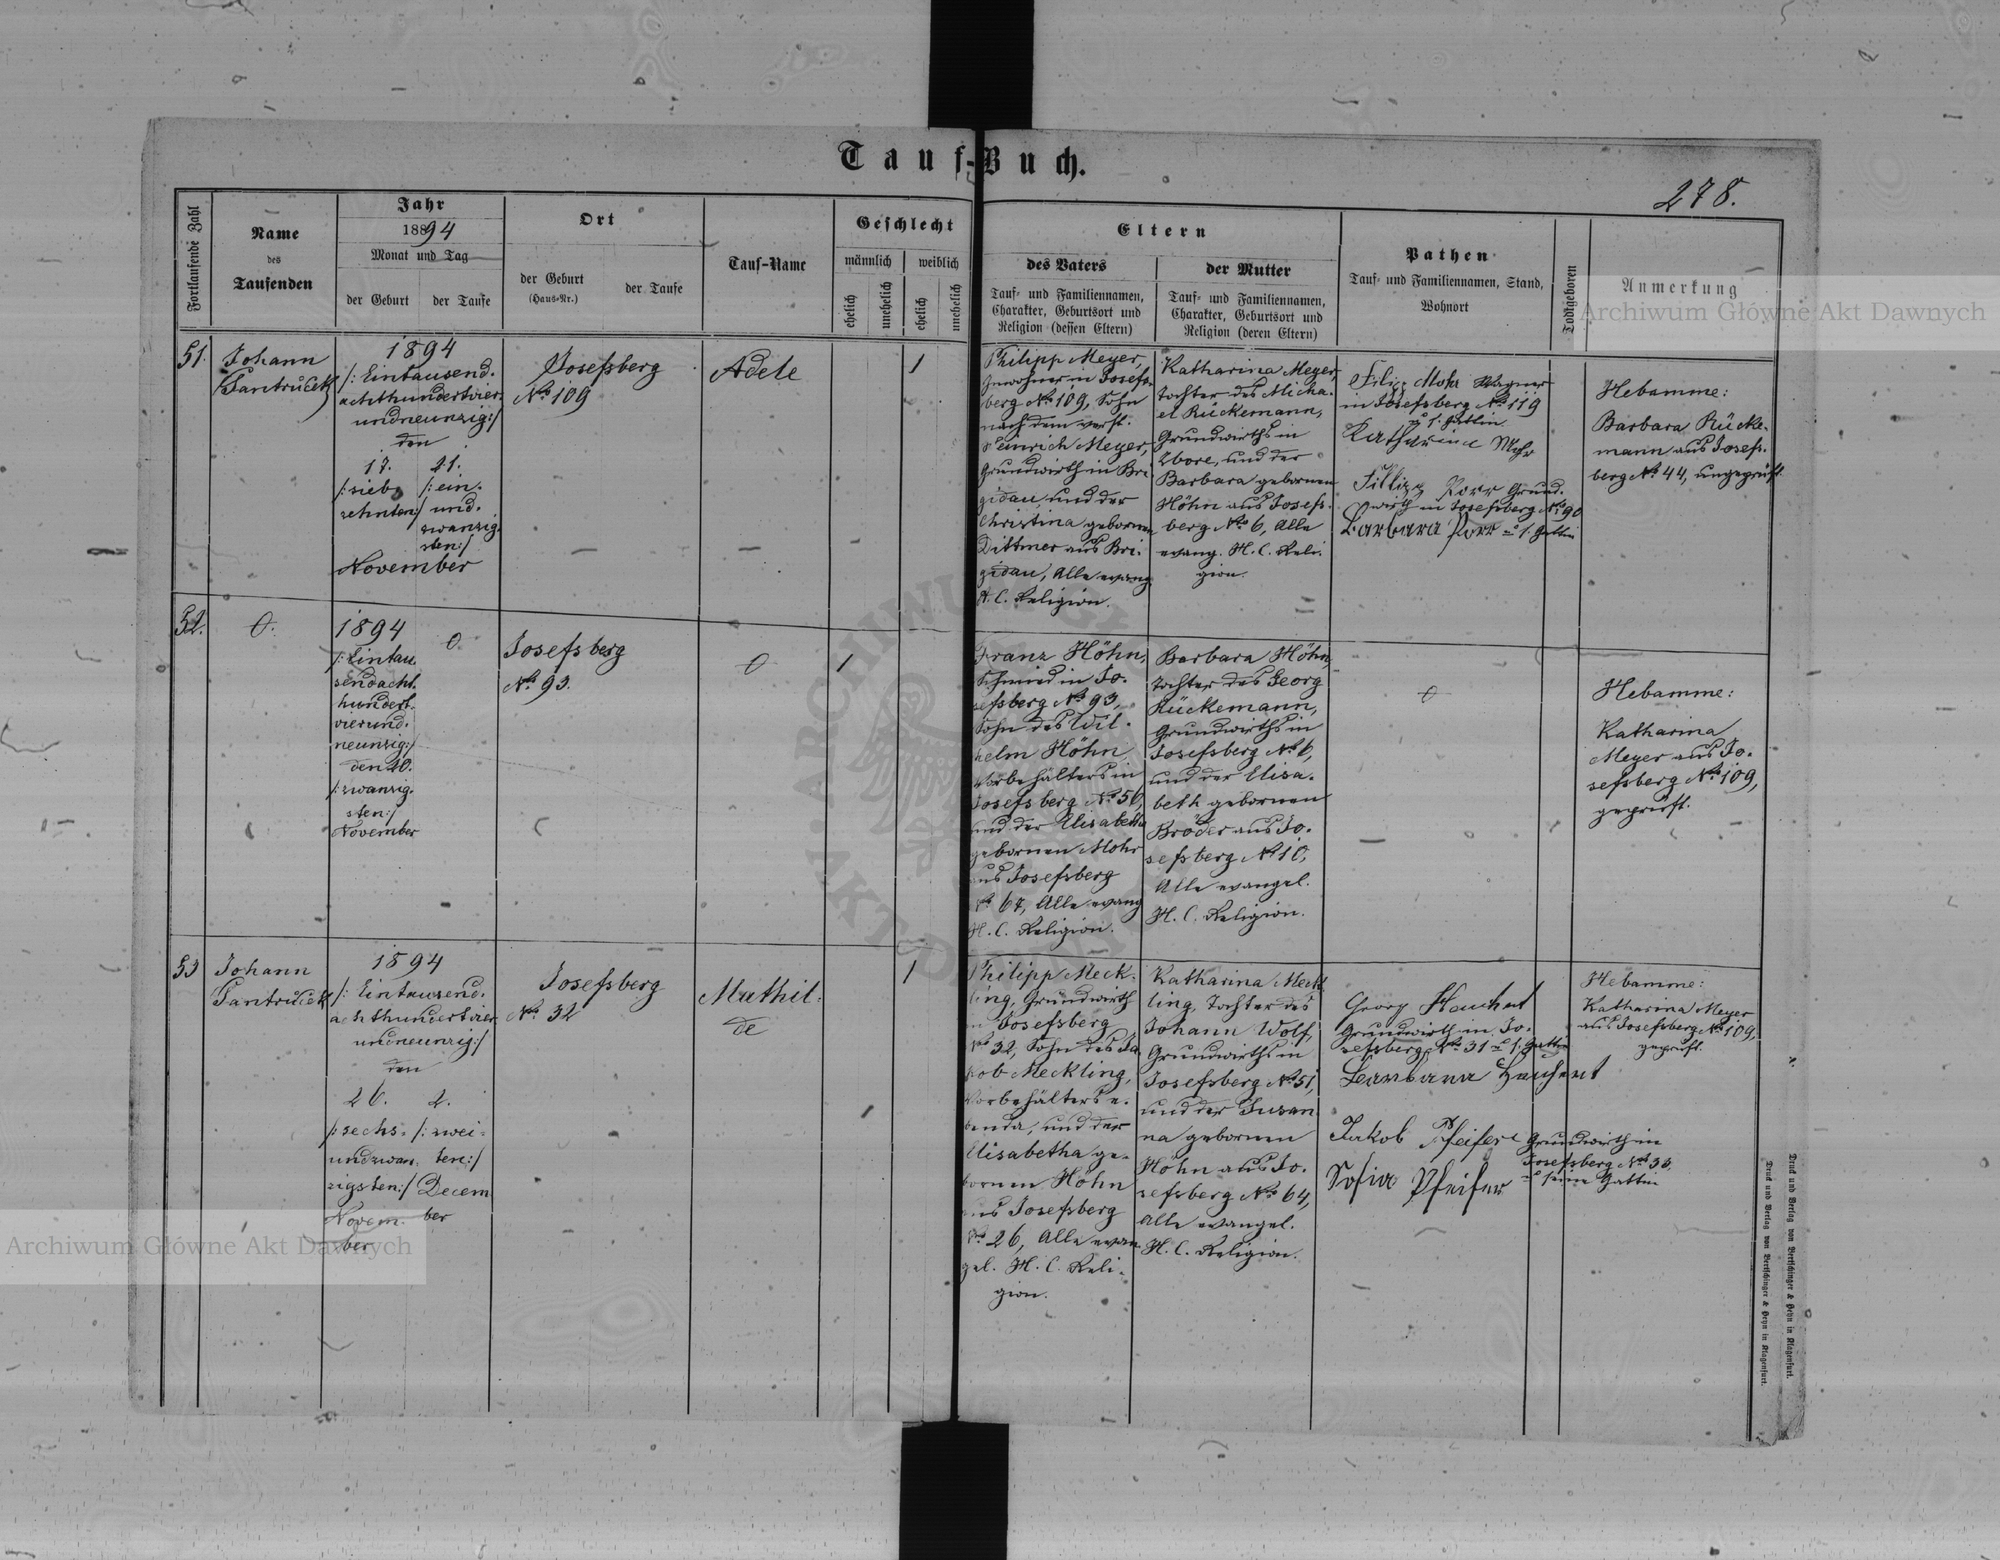 Tauf-Buch.
278.
Fortlaufende Zahl
Name
des
Taufenden
Jahr
1894
Monat und Tag
der Geburt
der Taufe
Ort
der Geburt
(Haus-Nr.)
der Taufe
Tauf-Name
Geschlecht
männlich
weiblich
ehelich
unehelich
ehelich
unehelich
Eltern
des Vaters
Tauf- und Familiennamen,
Charakter, Geburtsort und
Religion (dessen Eltern)
der Mutter
Tauf- und Familiennamen,
Charakter, Geburtsort und
Religion (deren Eltern)
Pathen
Tauf- und Familiennamen, Stand,
Wohnort
Todtgeboren
Anmerkung
Archiwum Główne Akt Dawnych
51.
Johann
1894
/: Eintausend-
achthundertvier-
undneunzig:/
den
17.
/: sieb-
zehnten:/
21.
/: ein-
und-
zwanzig-
sten:/
November
Josefsberg
No 109
Adele
1
Philipp Meyer,
Inwohner in Josefs-
berg No 109, Sohn
nach dem verst.
Heinrich Meyer,
Grundwirth in Bri-
gidau, und der
Christina gebornen
Dittmer aus Bri-
gidau, Alle evang.
H. C. Religion.
Katharina Meyer,
Tochter des Micha-
el Rückemann,
Grundwirths in
und der
Barbara gebornen
Höhn aus Josefs-
berg No 6, Alle
evang. H. C. Reli-
gion.
Filipp Mohr Wagner
in Josefsberg No 119
u. s. Gattin
Katharina Mohr
Fillipp Porr Grund-
wirth in Josefsberg No 90
Barbara Porr u. s. Gattin
Hebamme:
Barbara Rücke-
mann aus Josefs-
berg No 44, ungeprüft
52.
0.
1894
/: Eintau-
sendacht-
hundert-
vierund-
neunzig:/
den 20.
/: zwanzig-
sten:/
November
0
Josefsberg
No 93.
0
1
Franz Höhn,
Schmied in Jo-
sefsberg No 93,
Sohn des Wil-
helm Höhn,
Vorbehälters in
Josefsberg No 56,
und der Elisabetha
gebornen Mohr
aus Josefsberg
No 67, Alle evang.
H. C. Religion.
Barbara Höhn,
Tochter des Georg
Rückemann,
Grundwirths in
Josefsberg No 6,
und der Elisa-
beth gebornen
Bröder aus Jo-
sefsberg No 10,
Alle evangel.
H. C. Religion.
0
Hebamme:
Katharina
Meyer aus Jo-
sefsberg No 109,
geprüft.
53
Johann
1894
/: Eintausend-
achthundertvier-
undneunzig:/
den
26.
/: sechs-
undzwan-
zigsten:/
Novem-
ber
2.
/: zwei-
ten:/
Decem
ber
Josefsberg
No 32
Mathil-
de
1
Philipp Meck-
ling, Grundwirth
in Josefsberg
No 32, Sohn des Ja
kob Meckling,
Vorbehälters e-
benda, und der
Elisabetha ge-
bornen Höhn
aus Josefsberg
No 26, Alle evan-
gel. H. C. Reli-
gion.
Katharina Meck
ling, Tochter des
Johann Wolf,
Grundwirths in
Josefsberg No 51,
und der Susan
na gebornen
Höhn aus Jo-
sefsberg No 64,
Alle evangel.
H. C. Religion.
Georg
Grundwirth in Jo-
sefsberg No 31 u. s. Gattin
Barbara
Jakob Pfeifer Grundwirth in
Josefsberg No 33.
u. seine Gattin
Sofia Pfeifer
Hebamme:
Katharina Meyer
aus Josefsberg No 109,
geprüft.
Druck und Verlag von Bertschinger & Heyn in Klagenfurt.
Druck und Verlag von Bertschinger & Heyn in Klagenfurt.
Archiwum Główne Akt Dawnych